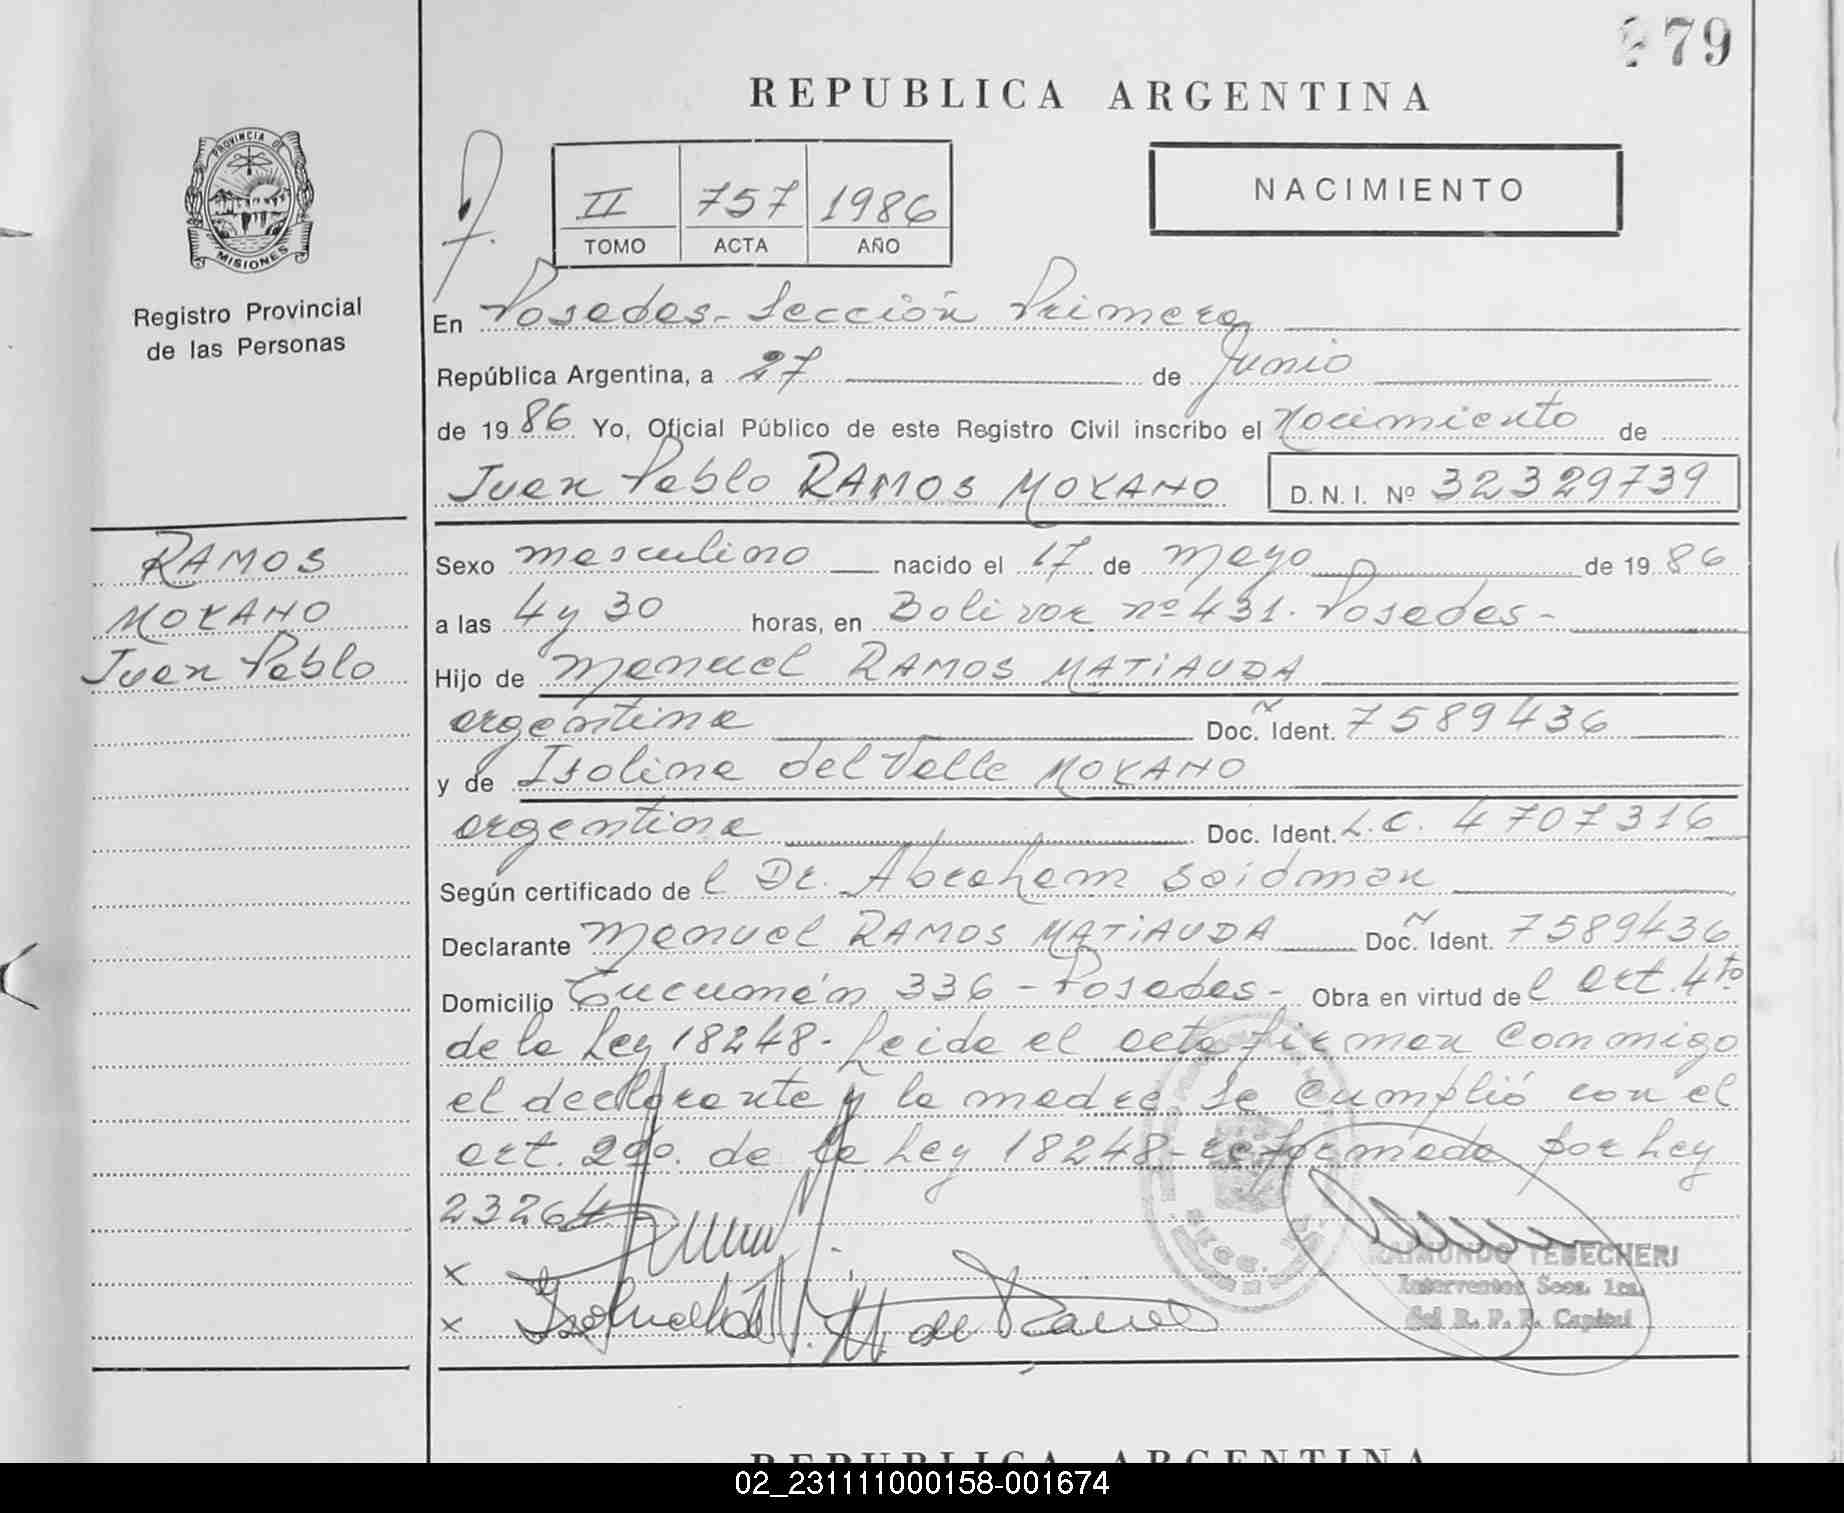 79
REPUBLICA ARGENTINA
PROVINCIA DE
MISIONES
Registro Provincial
de las Personas
II 757 1986
TOMO ACTA AÑO
NACIMIENTO
En Posadas - Sección Primera
República Argentina, a 27 de Junio
de 1986 Yo, Oficial Público de este Registro Civil inscribo el Nacimiento de
Juan Pablo RAMOS MOYANO D.N.I. Nº 32329739
RAMOS
MOYANO
Juan Pablo
Sexo masculino nacido el 17 de mayo de 1986
a las 4 y 30 horas, en Bolivar nº 431. Posadas -
Hijo de Manuel RAMOS MATIAUDA
argentina Doc. Ident. 7589436
y de Isolina del Valle MOYANO
argentina Doc. Ident. L.C. 4707316
Según certificado de l Dr. Abraham Saidman
Declarante Manuel RAMOS MATIAUDA Doc. Ident. 7589436
Domicilio Tucumán 336 - Posadas - Obra en virtud de l art. 4to
de la Ley 18248. Leida el acta firman conmigo
el declarante y la madre. Se cumplió con el
art. 2do. de la Ley 18248 - reformada por Ley
23264
x
x
RAIMUNDO TEBECHERI
Interventor Secc. 1ra.
del R. P. P. Capital
REPUBLICA ARGENTINA
02_231111000158-001674